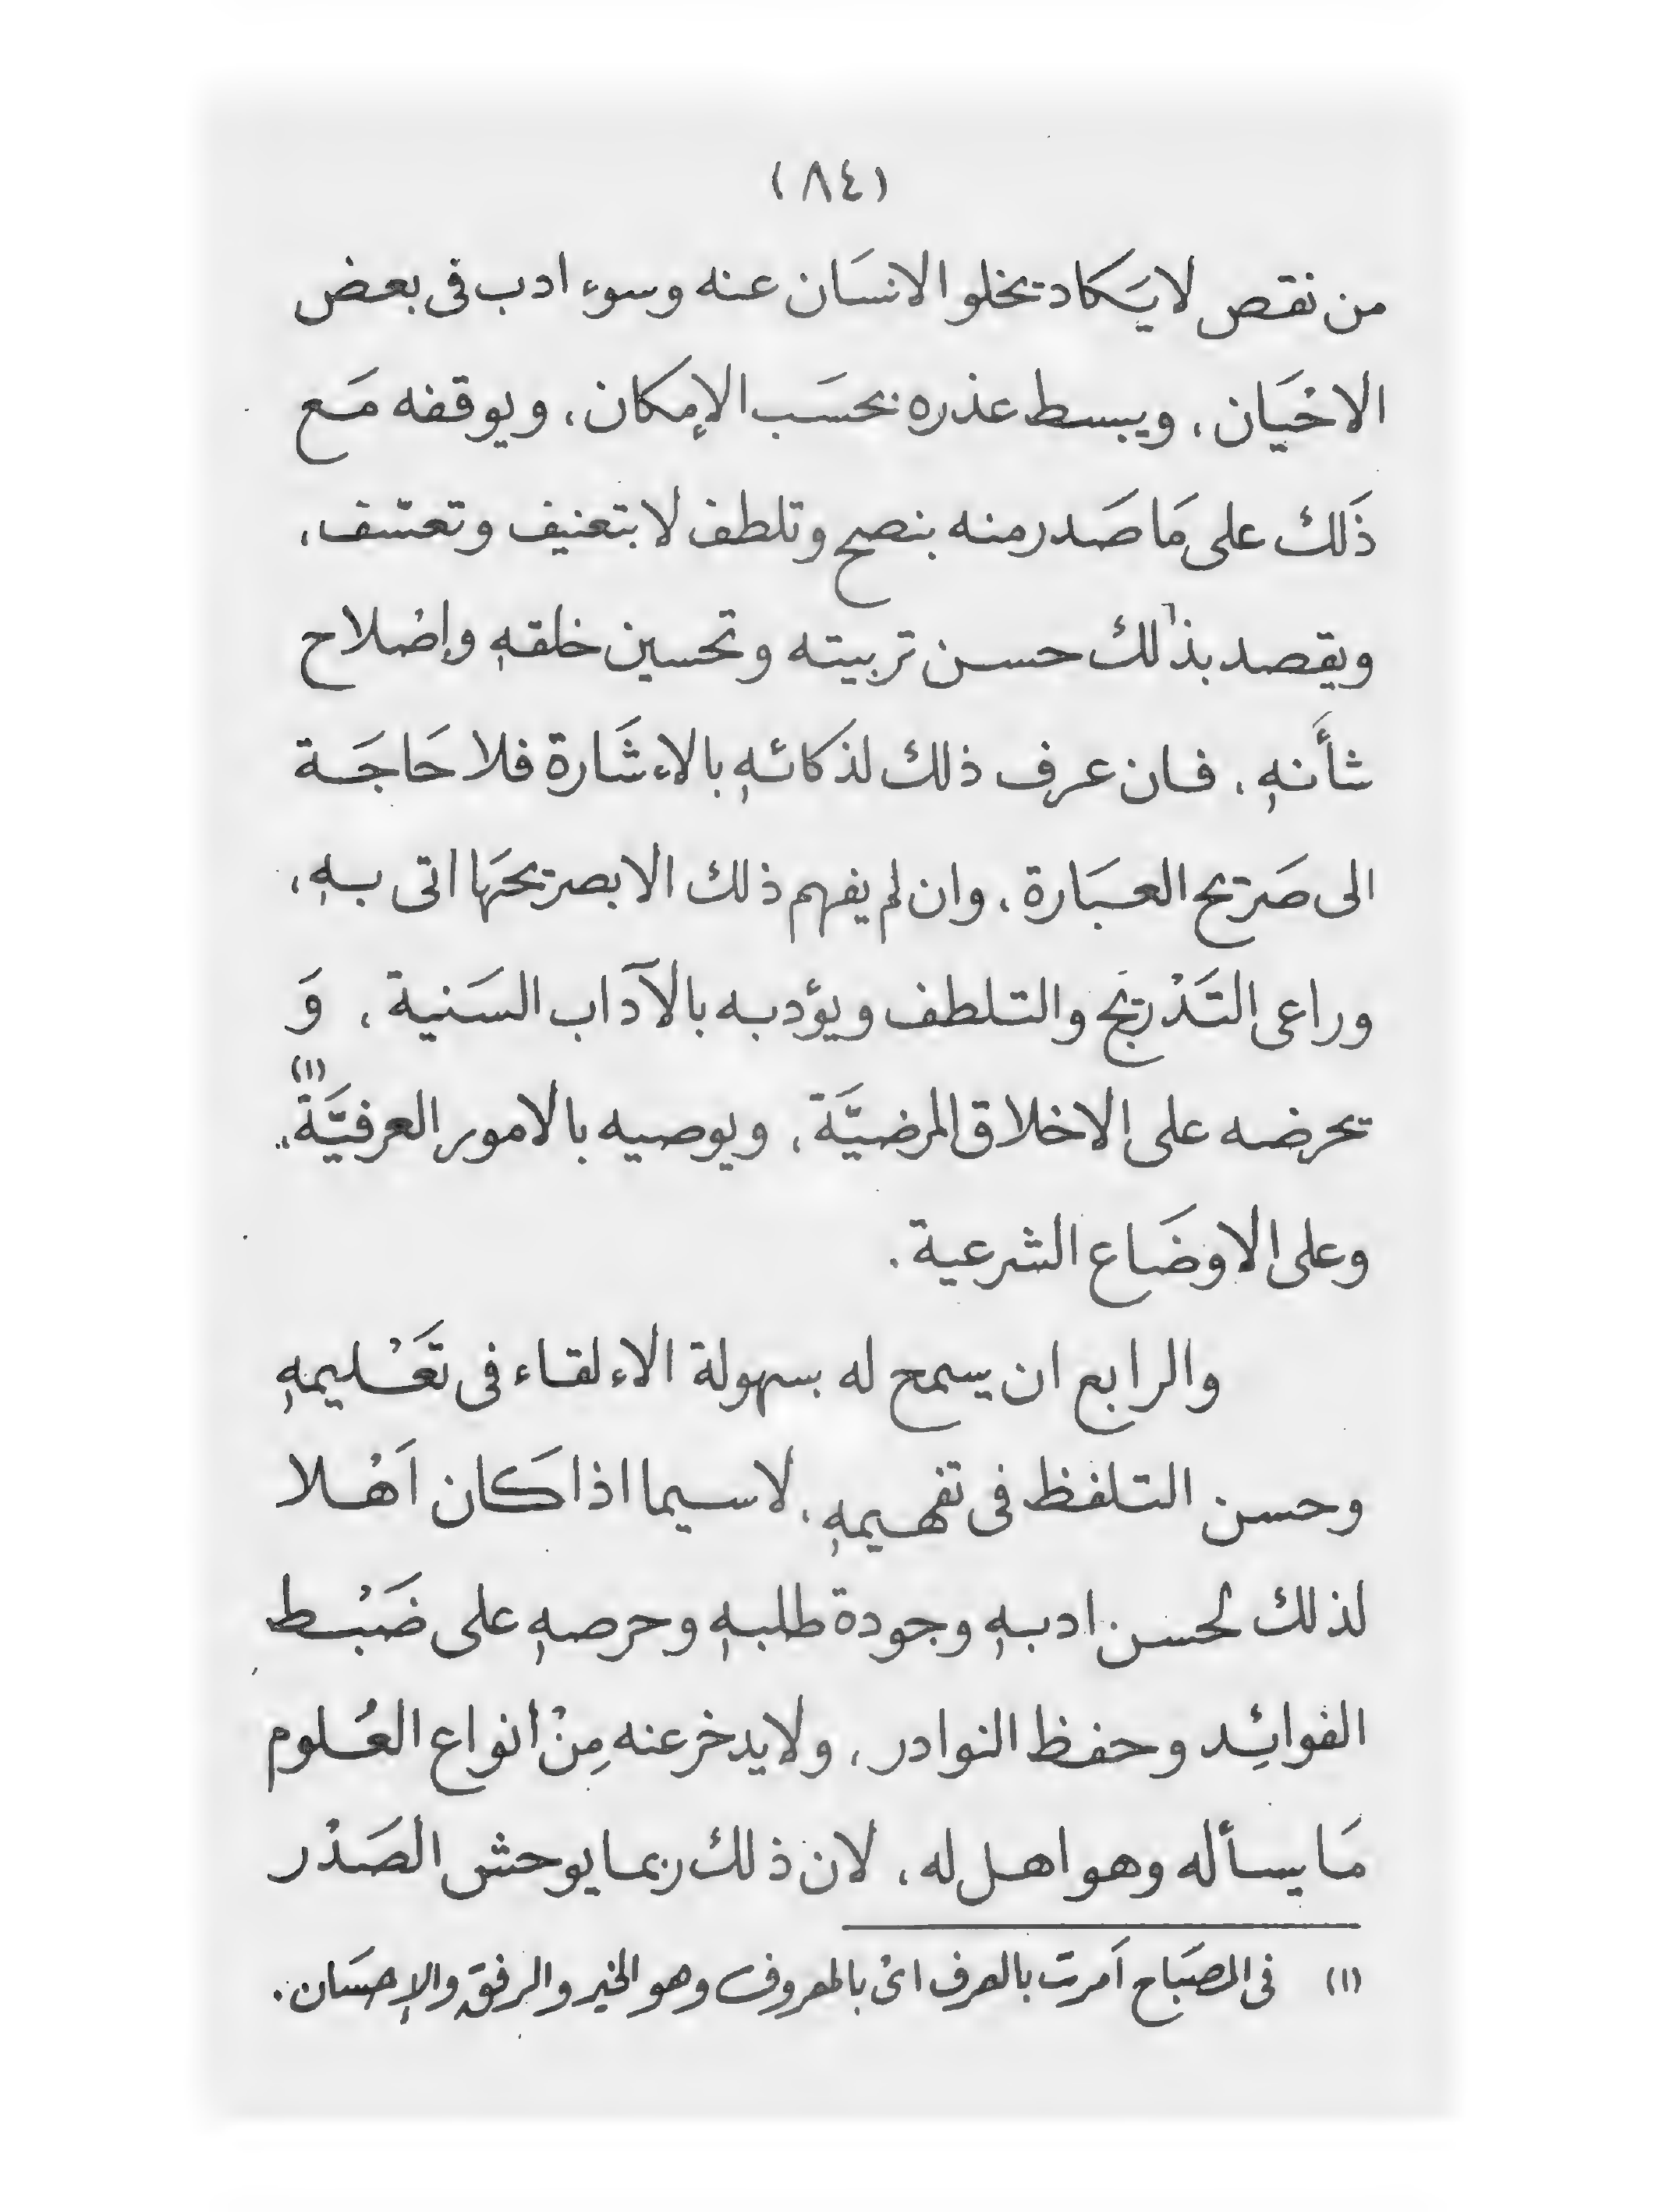 (٨٤)
من نقص لا يَكاد يخلو الانسَان عنه وسوء ادب فى بعض
الاحْيَان، ويبسط عذره بحسَب الإمكان، ويوقفه مَع
ذَلك على مَا صَدر منه بنصح وتلطف لا بتعنيف وتعسّف،
ويقصد بذٰلك حسن تربيته وتحسين خلقهِ وإصْلاح
شأَنهِ، فان عرف ذلك لذكائهِ بالاءشَارة فلا حَاجَة
الى صَريح العبَارة، وان لم يفهم ذلك الا بصريحهَا اتى بهِ،
وراعى التَدْريَج والتلطف ويؤدبه بالآداب السَنية، وَ
يحرضه على الاخلاق المرضيَّة، ويوصيه بالامور العرفيَّة(١)
وعلى الاوضَاع الشرعية.
والرابع ان يسمح له بسهولة الاءلقاء فى تَعْليمهِ
وحسن التلفظ فى تفهيمهِ، لاسيما اذا كَان اَهْلا
لذلك لحسن ادبهِ وجودة طلبهِ وحرصهِ على ضَبْط
الفوائِد وحفظ النوادر، ولا يدخر عنه مِنْ أنواع العُلوم
مَا يسأله وهو اهل له، لان ذلك ربما يوحش الصَدْر
(١) فى المصبَاح اَمرت بالعرف اىْ بالمعروف وهو الخير والرفق والإحسَان.